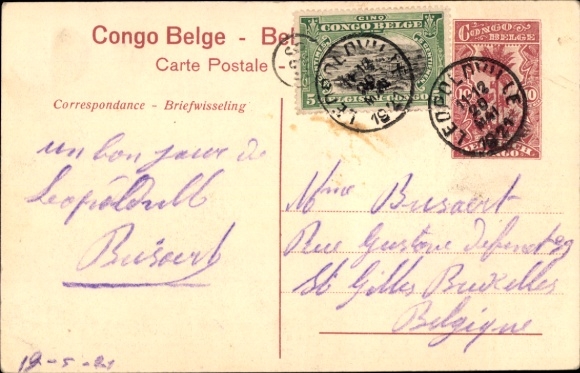 Congo Belge - Be
Carte Postale
CINQ
CONGO BELGE
CENTIMES
5
BELGISCH CONGO
LEOPOLDVILLE
CONGO BELGE
10
LEOPOLDVILLE
Correspondance - Briefwisseling
un bon jour de
Léopoldvill
Busaert
Mme Busaert
Rue Gustave
St Gilles Bruxelles
Belgique
19-5-21